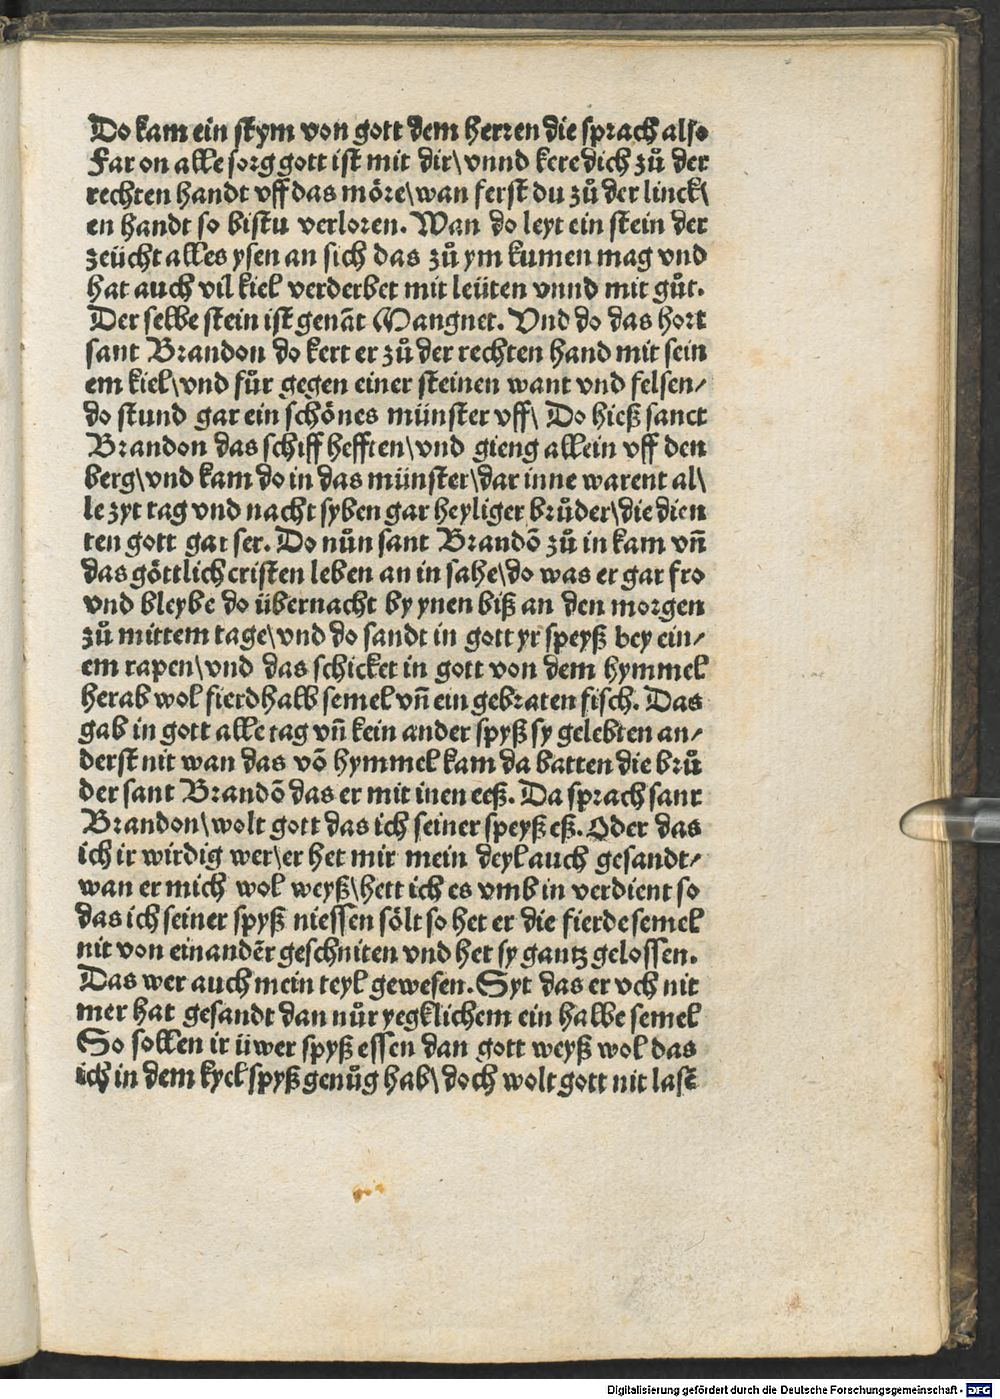 Do kam ein stym von gott dem herren die sprach also
Far on alle sorg gott ist mit dir\ vnnd kere dich zů der
rechten handt vff das möre\ wan ferst du zů der linck\
en handt so bistu verloren. Wan do leyt ein stein der
zeücht alles ysen an sich das zů ym kumen mag vnd
hat auch vil kiel verderbet mit leüten vnnd mit gůt.
Der selbe stein ist genāt Mangnet. Vnd do das hort
sant Brandon do kert er zů der rechten hand mit sein
em kiel\ vnd fůr gegen einer steinen want vnd felsen/
do stund gar ein schönes münster vff\ Do hieß sanct
Brandon das schiff hefften\ vnd gieng allein vff den
berg\ vnd kam do in das münster\ dar inne warent al\
le zyt tag vnd nacht syben gar heyliger brůder\ die dien
ten gott gar ser. Do nůn sant Brandō zů in kam vn̄
das göttlich cristen leben an in sahe\ do was er gar fro
vnd bleybe do übernacht by ynen biß an den morgen
zů mittem tage\ vnd do sandt in gott yr speyß bey ein/
em rapen\ vnd das schicket in gott von dem hymmel
herab wol fierdhalb semel vn̄ ein gebraten fisch. Das
gab in gott alle tag vn̄ kein ander spyß sy gelebten an/
derst nit wan das vō hymmel kam da batten die brů
der sant Brandō das er mit inen eeß. Da sprach sant
Brandon\ wolt gott das ich seiner speyß eß. Oder das
ich ir wirdig wer\ er het mir mein deyl auch gesandt/
wan er mich wol weyß\ hett ich es vmb in verdient so
das ich seiner spyß niessen sölt so het er die fierde semel
nit von einandēr geschniten vnd het sy gantz gelossen.
Das wer auch mein teyl gewesen. Syt das er vch nit
mer hat gesandt dan nůr yegklichem ein halbe semel
So sollen ir üwer spyß essen dan gott weyß wol das
ich in dem kyel spyß genůg hab\ doch wolt gott nit lasē
Digitalisierung gefördert durch die Deutsche Forschungsgemeinschaft - DFG